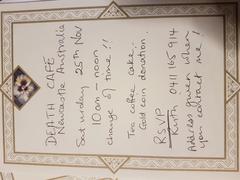 DEATH CAFÉ
Newcastle Australia
Saturday 25th Nov
10am - noon
change of time !!
Tea coffee cake.
Gold coin donation.
RSVP
Ruth 0411 165 914
Address given when
you contact me !